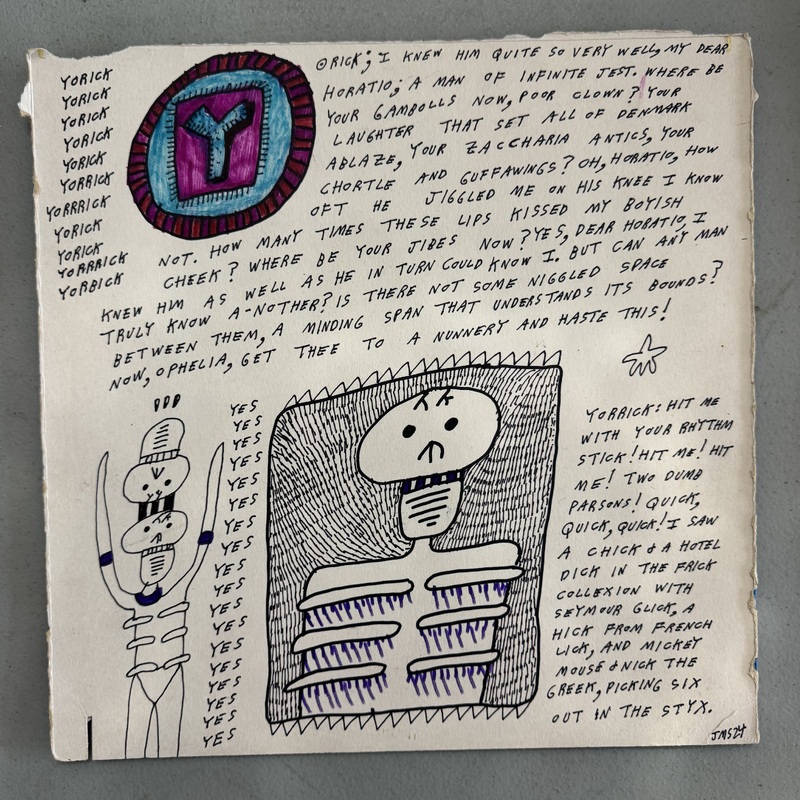 YORICK
YORICK
YORICK
YORICK
YORICK
YORRICK
YORRRICK
YORICK
YORICK
YORRRICK
YORBICK
Y
ORICK; I KNEW HIM QUITE SO VERY WELL, MY DEAR
HORATIO; A MAN OF INFINITE JEST. WHERE BE
YOUR GAMBOLLS NOW, POOR CLOWN? YOUR
LAUGHTER THAT SET ALL OF DENMARK
ABLAZE, YOUR ZACCHARIA ANTICS, YOUR
CHORTLE AND GUFFAWINGS? OH, HORATIO, HOW
OFT HE JIGGLED ME ON HIS KNEE I KNOW
NOT. HOW MANY TIMES THESE LIPS KISSED MY BOYISH
CHEEK? WHERE BE YOUR JIBES NOW? YES, DEAR HORATIO, I
KNEW HIM AS WELL AS HE IN TURN COULD KNOW I. BUT CAN ANY MAN
TRULY KNOW A-NOTHER? IS THERE NOT SOME NIGGLED SPACE
BETWEEN THEM, A MINDING SPAN THAT UNDERSTANDS ITS BOUNDS?
NOW, OPHELIA, GET THEE TO A NUNNERY AND HASTE THIS!
YES
YES
YES
YES
YES
YES
YES
YES
YES
YES
YES
YES
YES
YES
YES
YES
YES
YORRICK: HIT ME
WITH YOUR RHYTHM
STICK! HIT ME! HIT
ME! TWO DUMB
PARSONS! QUICK,
QUICK, QUICK! I SAW
A CHICK & A HOTEL
DICK IN THE FRICK
COLLEXION WITH
SEYMOUR GLICK, A
HICK FROM FRENCH
LICK, AND MICKEY
MOUSE & NICK THE
GREEK, PICKING SIX
OUT IN THE STYX.
JMS24